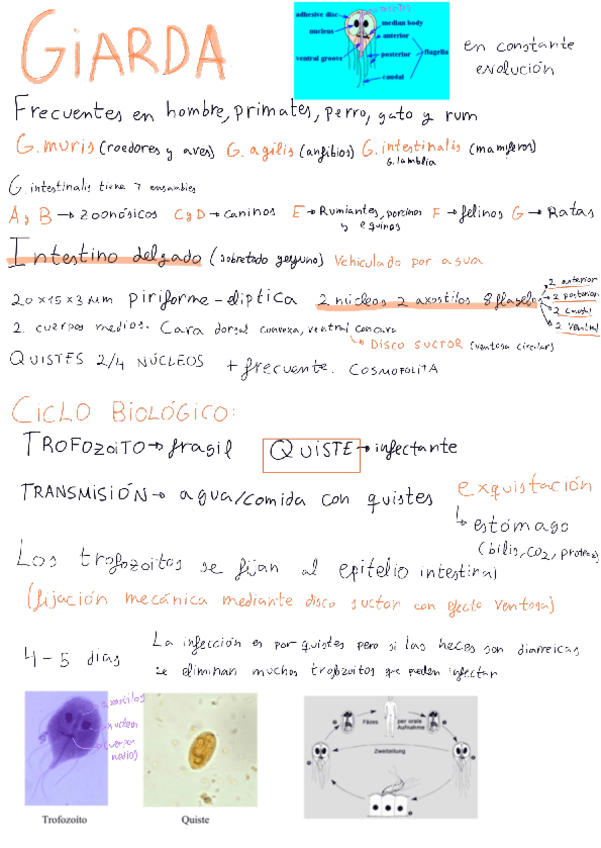 GIARDA
adhesive disc
nucleus
ventral groove
median body
anterior
posterior
flagella
caudal
en constante
evolución
Frecuentes en hombre, primates, perro, gato y rum
G. muris (roedores y aves) G. agilis (anfibios) G. intestinalis (mamíferos)
G. lamblia
G. intestinalis tiene 7 ensambles
A y B → Zoonósicos C y D → caninos E → Rumiantes, porcinos y equinos F → felinos G → Ratas
Intestino delgado (sobretodo yeyuno) Vehiculado por agua
20 x 15 x 3 µm piriforme-elíptica 2 núcleos 2 axostilos 8 flagelos
2 anterior
2 posterior
2 caudal
2 ventral
2 cuerpos medios. Cara dorsal convexa, ventral concava
↳ DISCO SUCTOR (ventosa circular)
QUISTES 2/4 NÚCLEOS + frecuente. COSMOPOLITA
CICLO BIOLÓGICO:
TROFOZOITO → fragil QUISTE → infectante
TRANSMISIÓN → agua/comida con quistes exquistación
↳ estómago
(bilis, CO2, proteasas)
Los trofozoitos se fijan al epitelio intestinal
(fijación mecánica mediante disco suctor con efecto ventosa)
4-5 días
La infección es por quistes pero si las heces son diarreicas
se eliminan muchos trofozoitos que pueden infectar
axostilos
nucleos
cuerpos
medios
Trofozoito
Quiste
Fäzes
per orale
Aufnahme
Zweiteilung